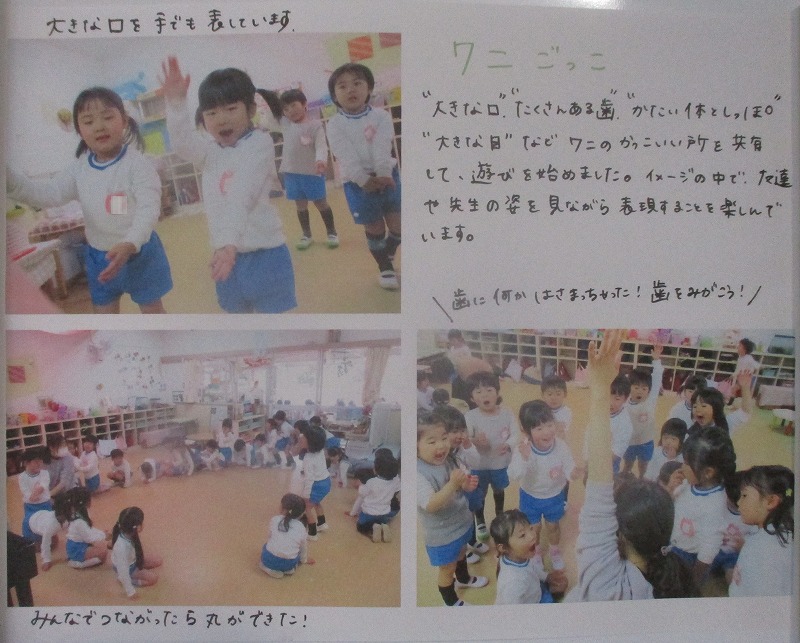 大きな口を手でも表しています。
ワニごっこ
"大きな口"、"たくさんある歯"、"かたい体としっぽ。"
"大きな目"などワニのかっこいい所を共有
して、遊びを始めました。イメージの中で、友達
や先生の姿を見ながら表現することを楽しんで
います。
\歯に何かはさまっちゃった!歯をみがこう!/
みんなでつながったら丸ができた!